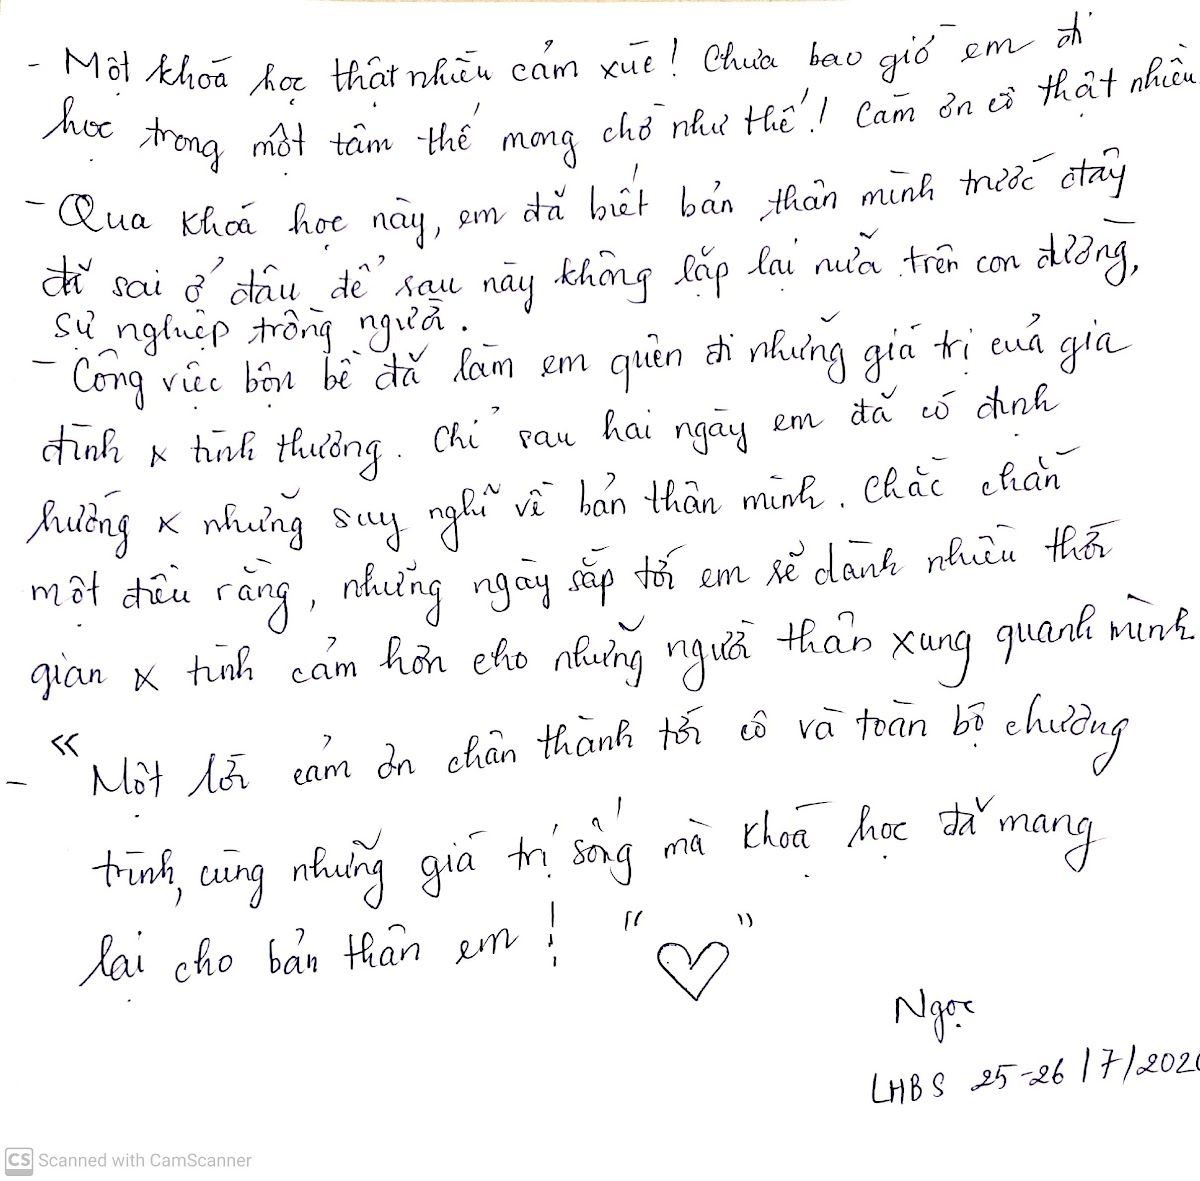 - Một khoá học thật nhiều cảm xúc! Chưa bao giờ em đi
học trong một tâm thế mong chờ như thế! Cảm ơn cô thật nhiều
- Qua khoá học này, em đã biết bản thân mình trước đây
đã sai ở đâu để sau này không lặp lại nữa trên con đường,
sự nghiệp trồng người.
- Công việc bộn bề đã làm em quên đi những giá trị của gia
đình x tình thương. Chỉ sau hai ngày em đã có định
hướng x những suy nghĩ về bản thân mình. Chắc chắn
một điều rằng, những ngày sắp tới em sẽ dành nhiều thời
gian x tình cảm hơn cho những người thân xung quanh mình
- "Một lời cảm ơn chân thành tới cô và toàn bộ chương
trình, cùng những giá trị sống mà khoá học đã mang
lại cho bản thân em! " ♡ "
Ngọc
LHBS 25-26/7/202
CS Scanned with CamScanner